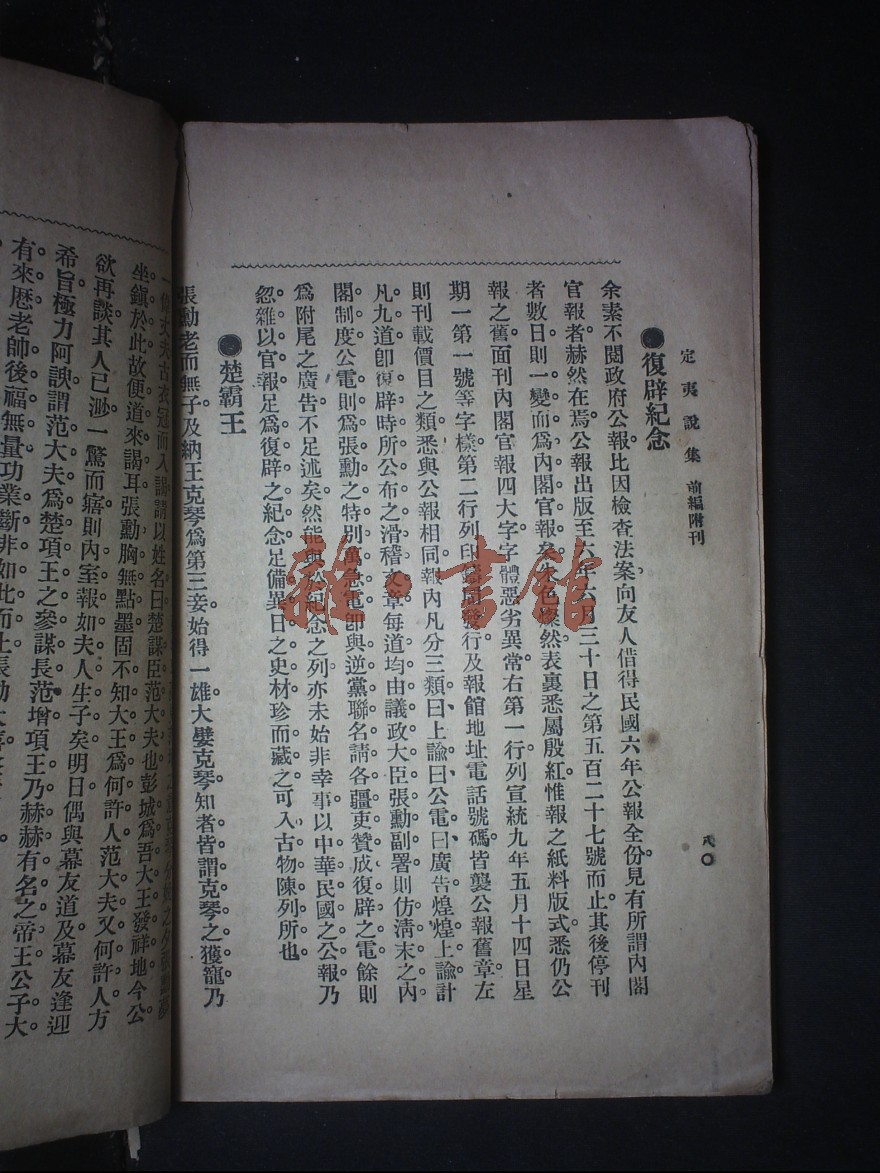 定夷說集 前編附刊
八〇
●復辟紀念
余素不閱政府公報比因檢查法案向友人借得民國六年公報全份見有所謂內閣
官報者赫然在焉公報出版至六年六月三十日之第五百二十七號而止其後停刊
者數日則一變而爲內閣官報矣朱色燦然表裏悉屬殷紅惟報之紙料版式悉仍公
報之舊面刊內閣官報四大字字體惡劣異常右第一行列宣統九年五月十四日星
期一第一號等字樣第二行列印鑄局發行及報館地址電話號碼皆襲公報舊章左
則刊載價目之類悉與公報相同報內凡分三類曰上諭曰公電曰廣告煌煌上諭計
凡九道卽復辟時所公布之滑稽文章每道均由議政大臣張勳副署則仿淸末之內
閣制度公電則爲張勳之特別萬急電卽與逆黨聯名請各疆吏贊成復辟之電餘則
爲附尾之廣告不足述矣然能與於紀念之列亦未始非幸事以中華民國之公報乃
忽雜以官報足爲復辟之紀念足備異日之史材珍而藏之可入古物陳列所也
●楚霸王
張勳老而無子及納王克琴爲第三妾始得一雄大嬖克琴知者皆謂克琴之獲寵乃
一偉丈夫古衣冠而入謁請以姓名曰楚謀臣范大夫也彭城爲吾大王發祥地今公
坐鎭於此故便道來謁耳張勳胸無點墨固不知大王爲何許人范大夫又何許人方
欲再談其人已渺一驚而寤則內室報如夫人生子矣明日偶與幕友道及幕友逢迎
希旨極力阿諛謂范大夫爲楚項王之參謀長范增項王乃赫赫有名之帝王公子大
有來歷老帥後福無量功業斷非如此而止張勳大喜
雜·書館